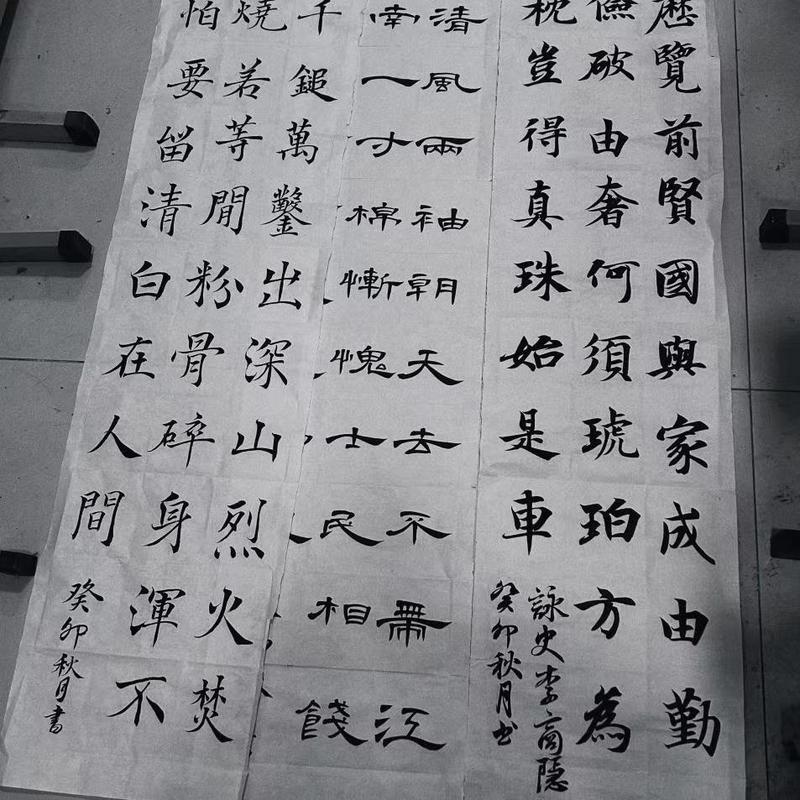 歷覽前賢國與家成由勤
儉破由奢何須琥珀方為
枕豈得真珠始是車
詠史李商隐
癸卯秋月书
清風兩袖朝天去不帶江
南一寸棉慚愧士民相餞
千鎚萬鑿出深山烈火焚
燒若等閒粉骨碎身渾不
怕要留清白在人間
癸卯秋月書